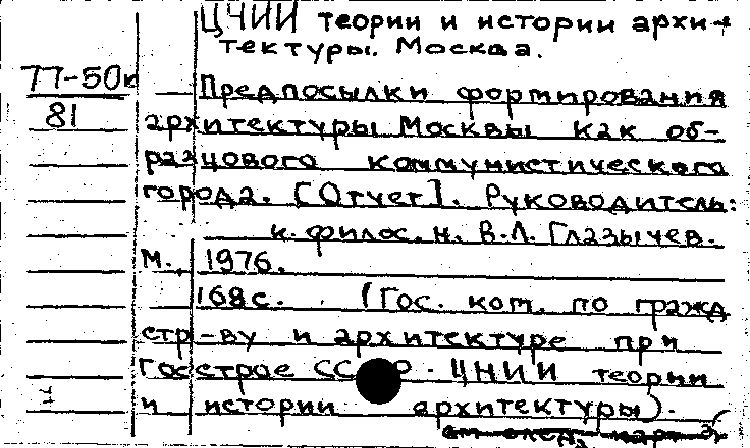 ЦНИИ теории и истории архи-
тектуры. Москва.
77-50к
81
Предпосылки формирования
архитектуры Москвы как об-
разцового коммунистического
города. [Отчет]. Руководитель:
к. филос. н. В.Л. Глазычев.
М., 1976.
168с. (Гос. ком. по гражд
стр-ву и архитектуре при
Госстрое СССР. ЦНИИ теории
и истории архитектуры).